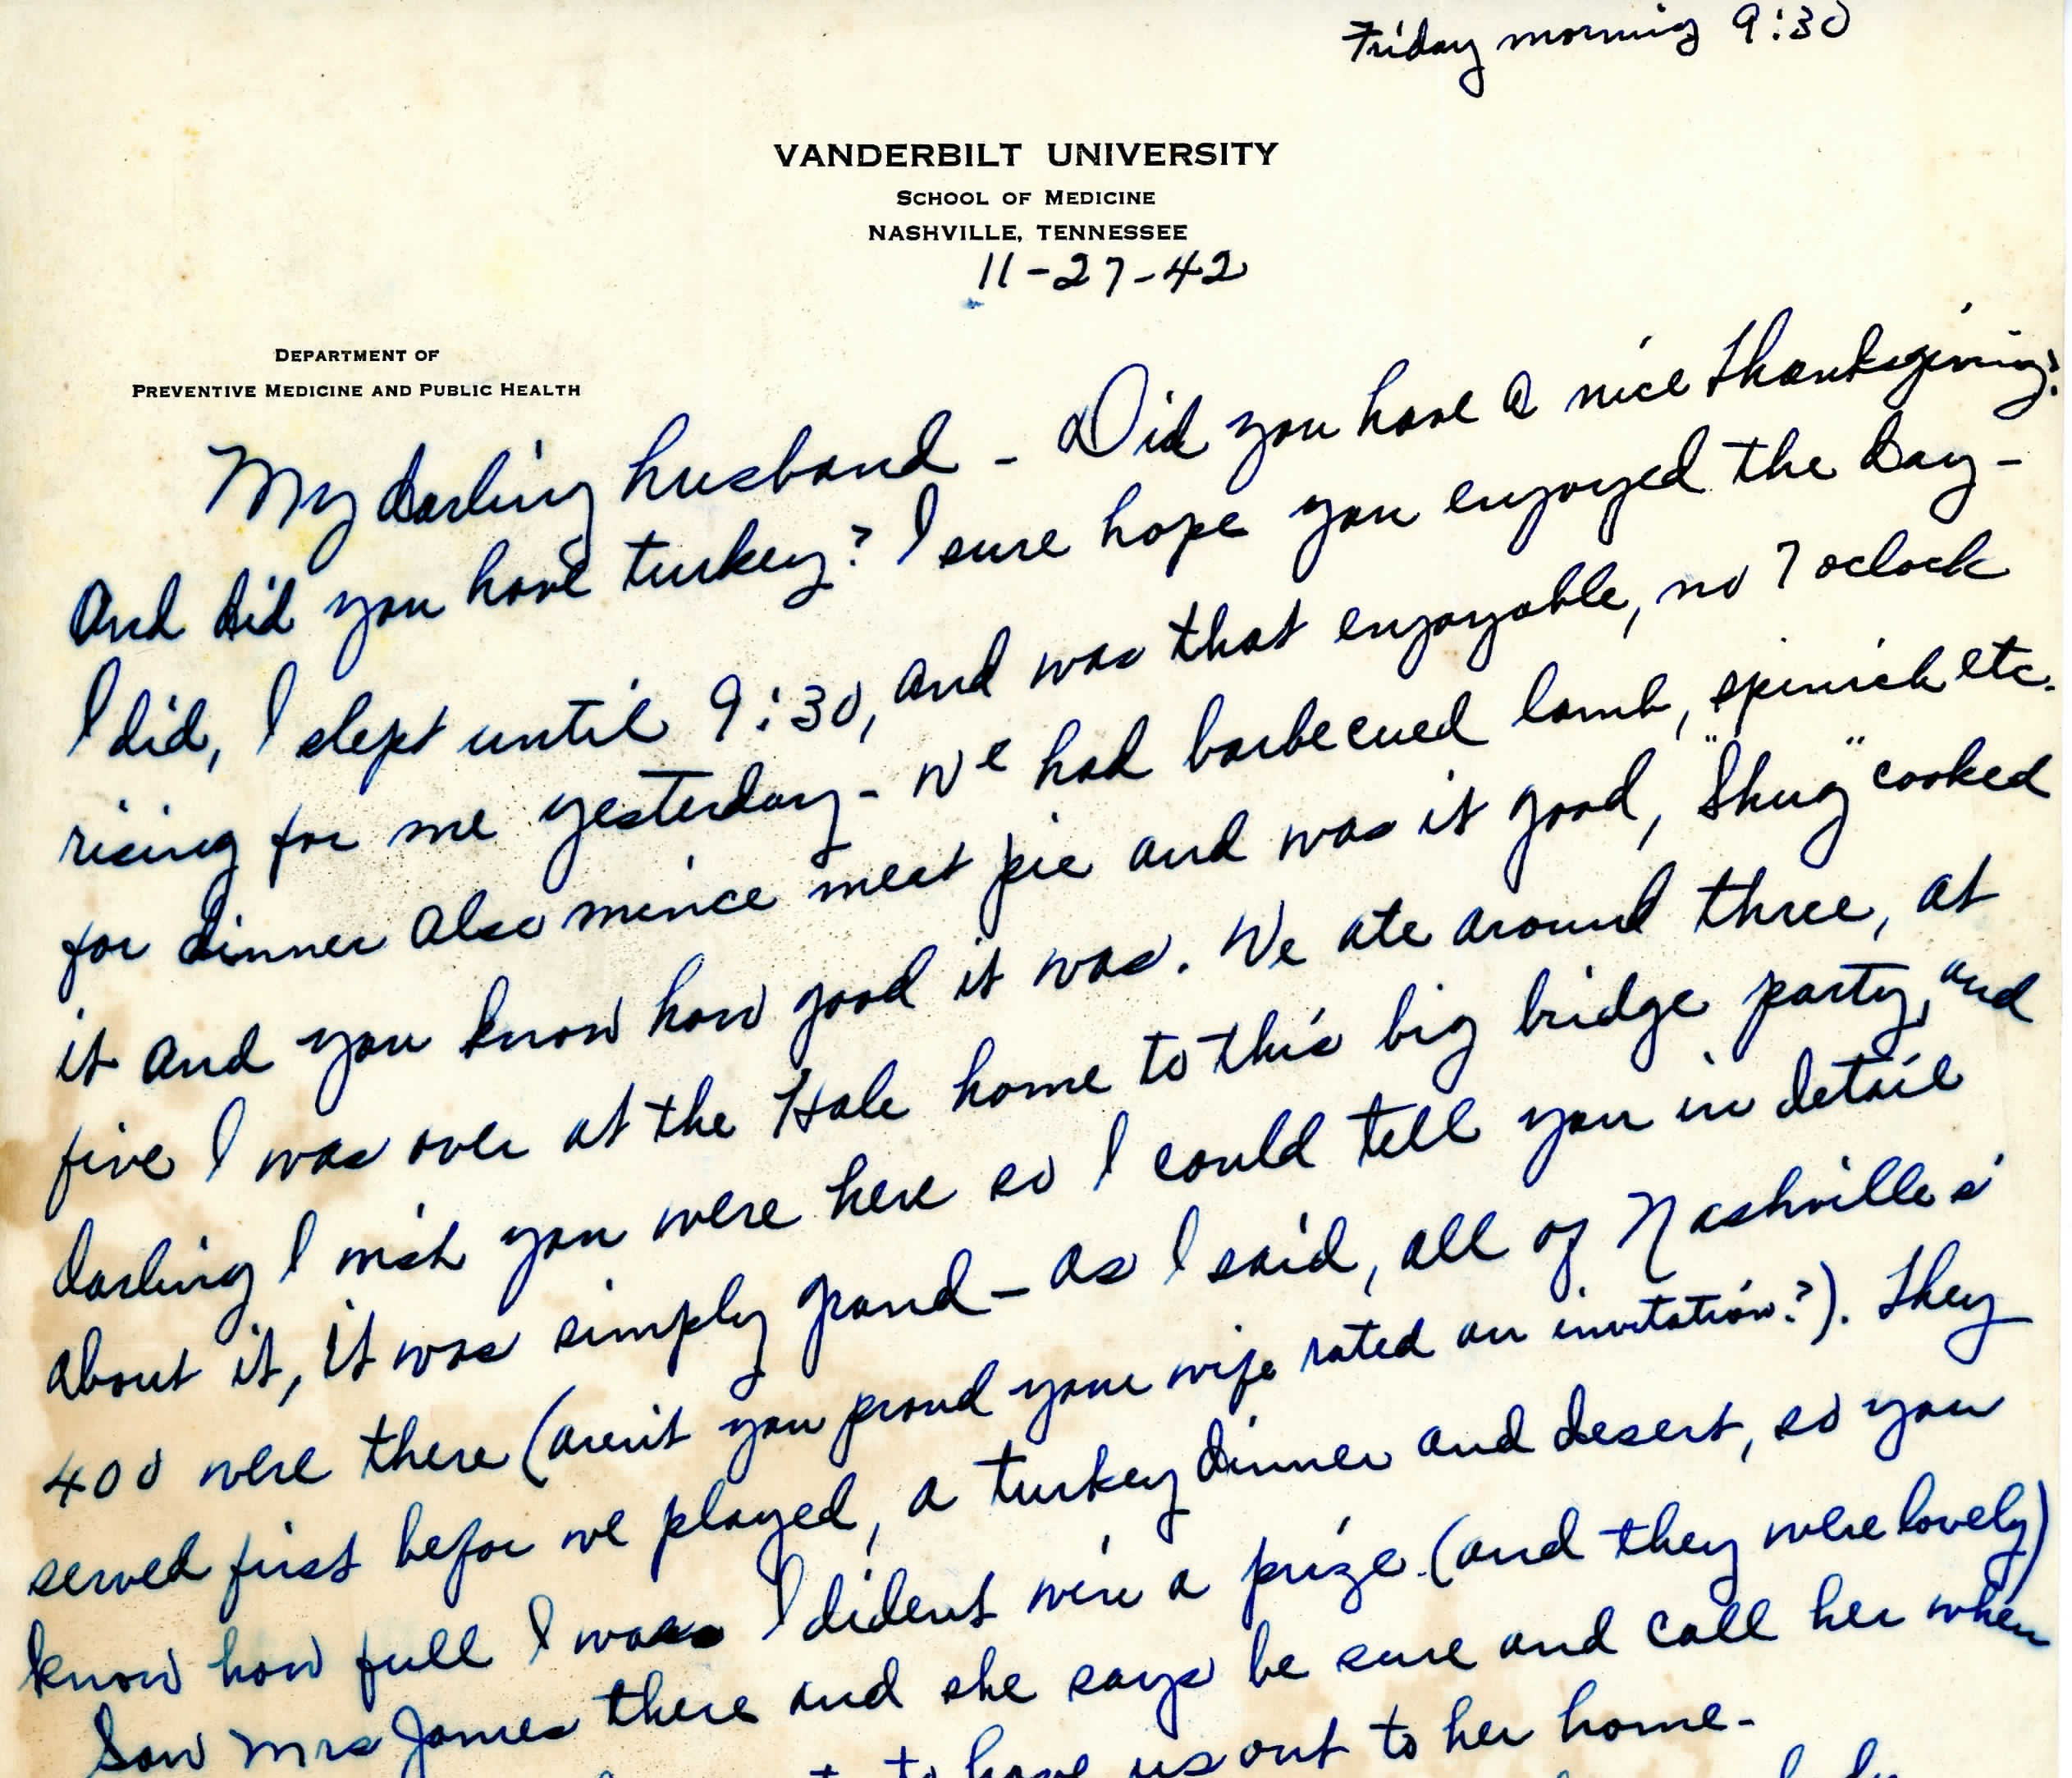 Friday morning 9:30
VANDERBILT UNIVERSITY
SCHOOL OF MEDICINE
NASHVILLE, TENNESSEE
11-27-42
DEPARTMENT OF
PREVENTIVE MEDICINE AND PUBLIC HEALTH
My darling husband - Did you have a nice Thanksgiving?
And did you have turkey? I sure hope you enjoyed the day -
I did, I slept until 9:30, and was that enjoyable, no 7 oclock
rising for me yesterday - We had barbecued lamb, spinich etc.
for dinner also mince meat pie and was it good, "Shug" cooked
it and you know how good it was. We ate around three, at
five I was over at the Hale home to this big bridge party, and
darling I wish you were here so I could tell you in detail
about it, it was simply grand - as I said, all of Nashville's
400 were there (aren't you proud your wife rated an invitation?). They
served first befor we played, a turkey dinner and desert, so you
know how full I was I dident win a prize (and they were lovely)
Saw Mrs James there and she says be sure and call her when
to have us out to her home -